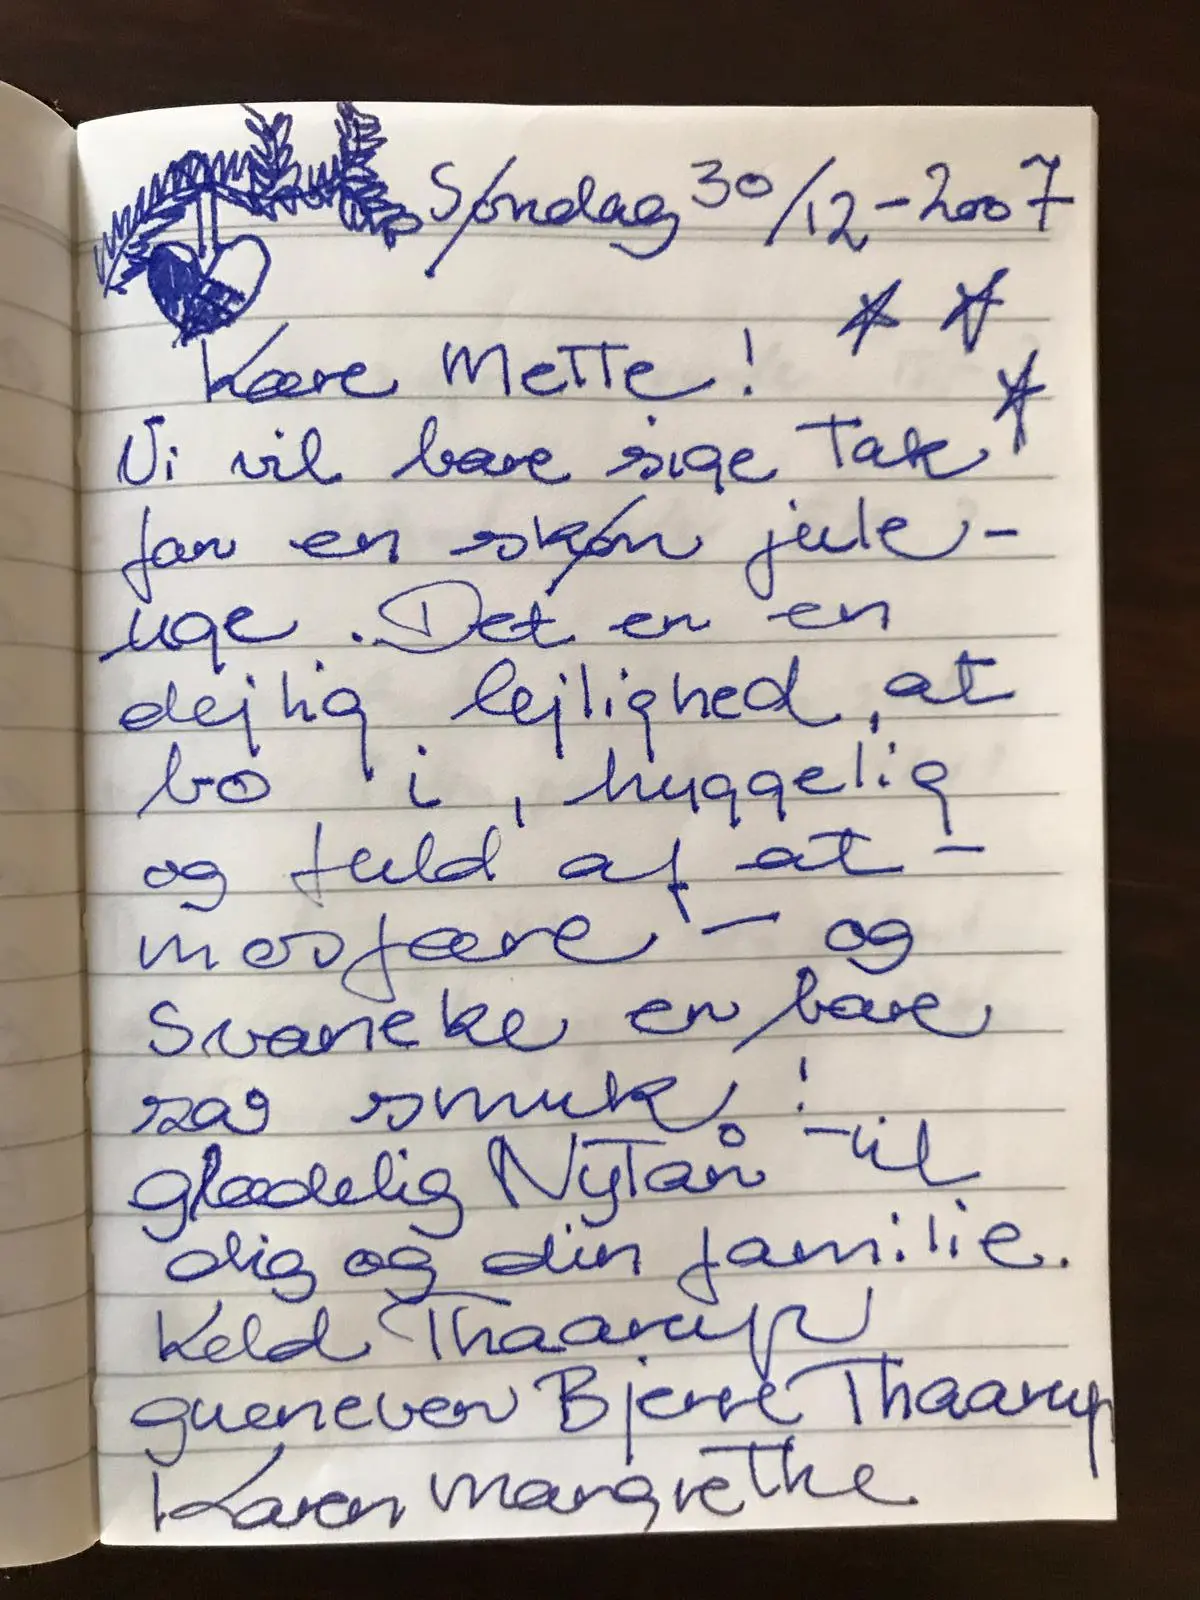 Søndag 30/12-2007
Kære Mette!
Vi vil bare sige Tak
for en skøn jule-
uge. Det er en
dejlig lejlighed, at
bo i, hyggelig
og fuld af at-
mosfære - og
Svaneke er bare
saa smuk!
glædelig Nytår til
dig og din familie.
Keld Thaarup
guenever Bjerre Thaarup
Karen margrethe